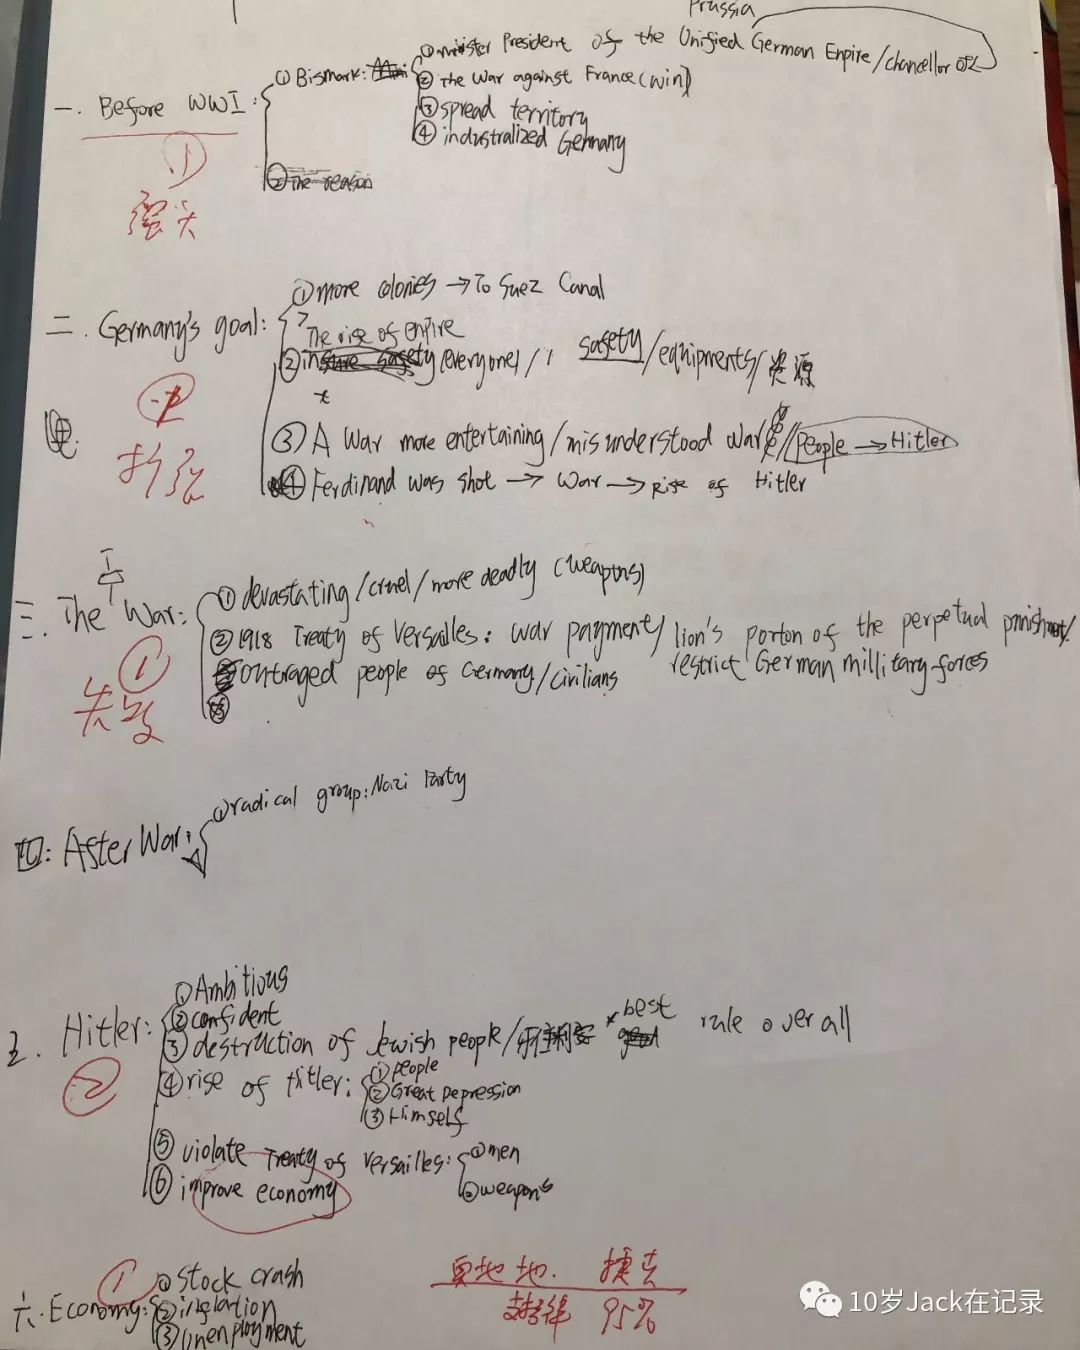 Prussia
① minister President of the Unified German Enpire/chancellor of
① Bismark:
② the War against France(win)
一. Before WWI:
③ spread territory
④ industralized Germany
② The reason
①
强大
① more colonies → To Suez Canal
二. Germany's goal:
The rise of enpire
② insure sasety (everyone) / sasety/equipments/资源
扩张
③ A War more entertaining/misunderstood War/people → Hitler
④ Ferdinand was shot → War → Rise of Hitler
① devastating/cruel/more deadly (weapons)
三. The War:
I
② 1918 Treaty of Versailles: war payment/lion's porton of the perpetual punishment/
outraged people of Germany/civilians restrict German millitary forces
①
失败
① radical group: Nazi Party
四: Aster War:
① Ambitious
五. Hitler:
② confident
③ destruction of Jewish people/ best rule over all
②
④ rise of Hitler: ① people
② Great Depression
③ Himself
⑤ violate Treaty of Versailles: ① men
⑥ improve economy ② weapons
① ① stock crash
六. Economy: ② inslation
③ Unenployment
奥地地. 捷克
95%
10岁Jack在记录